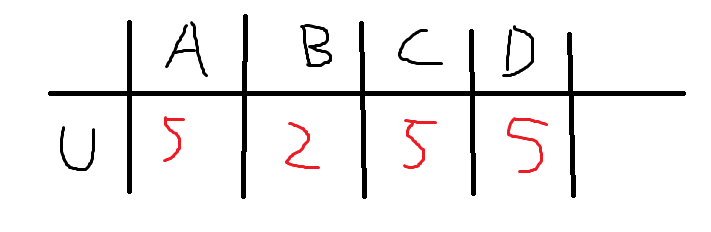 A B C D
U 5 2 5 5